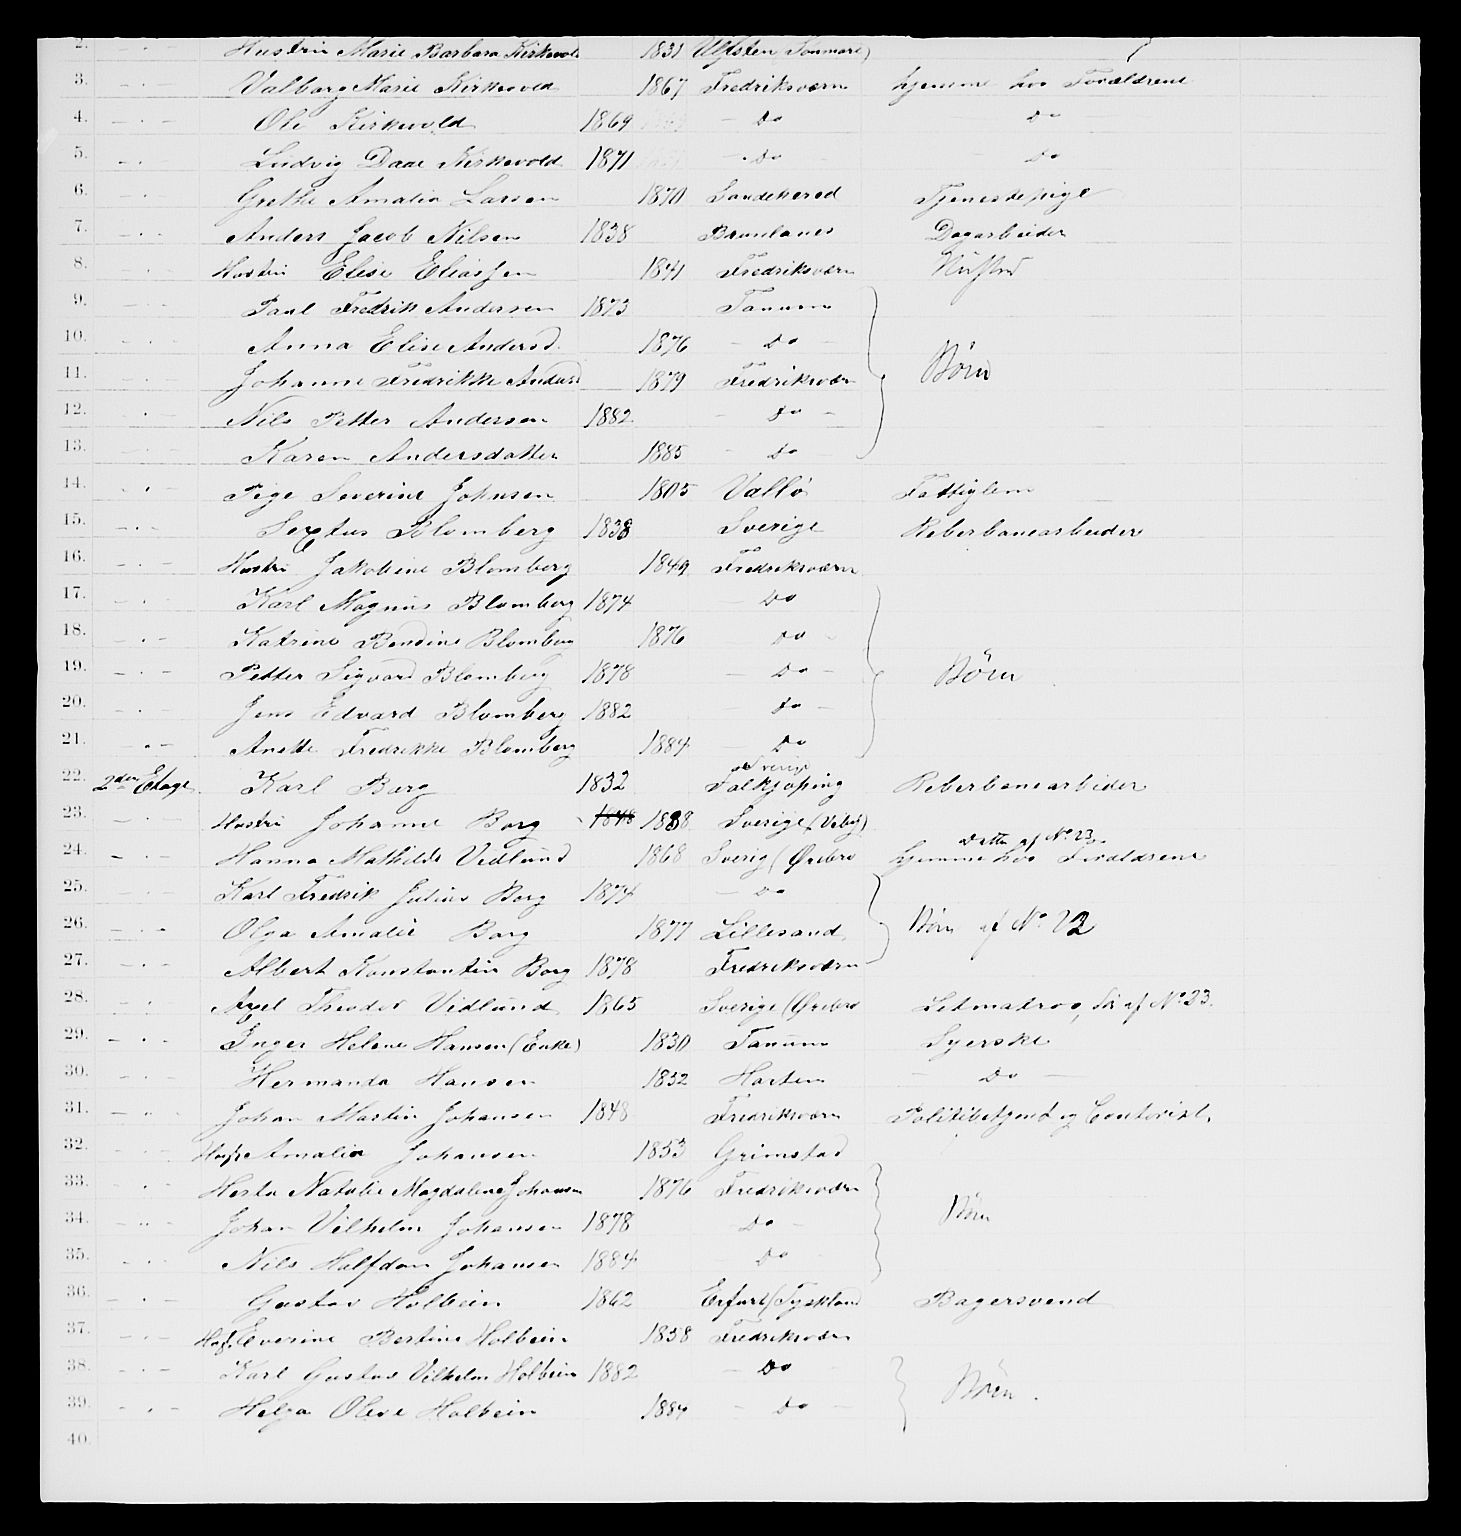 2. — " — Hustru Marie Barbara Kirkevold 1831 Ulfsten (Sønmøre)
3. — " — Valborg Marie Kirkevold 1867 Fredriksværn hjemme hos Forældrene
4. — " — Ole Kirkevold 1869 — Do Do
5. — " — Ludvig Daae Kirkevold 1871 — Do — Do
6. — " — Grethe Amalia Larsen 1870 Sandeherred Tjenestepige
7. — " — Anders Jacob Nilsen 1838 Brunlanes Dagarbeider
8. — " — Hustru Elise Eliassen 1841 Fredriksværn
9. — " — Paul Fredrik Andersen 1873 Tanum
10. — " — Anna Elise Andersd. 1876 — Do — Børn
11. — " — Johanne Fredrikke Andersd 1879 Fredriksværn
12. — " — Nils Petter Andersen 1882 — Do —
13. — " — Karen Andersdatter 1885 — Do
14. — " — Pige Severine Johnsen 1805 Vallö Fattiglem
15. — " — Sextus Blomberg 1838 Sverige Reberbanearbeider
16. — " — Hustru Jakobine Blomberg 1849 Fredriksværn
17. — " — Karl Magnus Blomberg 1874 Do
18. — " — Katrine Bendine Blomberg 1876 Do —
19. — " — Petter Sigvard Blomberg 1878 — Do — Børn
20. — " — Jens Edvard Blomberg 1882 — Do —
21. — " — Anette Fredrikke Blomberg 1884 — Do
22. 2den Etage. Karl Borg 1832 Sverige Falkjøping Reberbanearbeider
23. — " — Hustru Johanne Borg 1848 1838 Sverige (Veby)
24. — " — Hanna Mathilde Vidlund 1868 Sverig (Ørebro Datter af No 23. hjemme hos Forældrene
25. — " — Karl Fredrik Julius Borg 1874 — Do
26. — " — Olga Amalie Borg 1877 Lillesand Børn af No 22
27. — " — Albert Konstantin Borg 1878 Fredriksværn
28. — " — Axel Theodor Vidlund 1865 Sverige (Ørebro Letmatros, Søn af No 23.
29. — " — Inger Helene Hansen (Enke) 1830 Tanum Syerske
30. — " — Hermanda Hansen 1832 Horten — Do —
31. — " — Johan Martin Johansen 1848 Fredriksværn Politibetjent og Contorist.
32. — " — Amalia Johansen 1853 Grimstad
33. — " — Herta Natalie Magdalene Johansen 1876 Fredriksværn
34. — " — Johan Vilhelm Johansen 1878 Do — Børn
35. — " — Nils Halfdan Johansen 1884 Do
36. — " — Gustav Holbein 1862 Erfurt (Tyskland Bagersvend
37. — " — Everine Bertine Holbein 1858 Fredriksværn
38. — " — Karl Gustav Vilhelm Holbein 1882 — Do —
39. — " — Helga Olive Holbein 1884 — Do — Børn.
40.